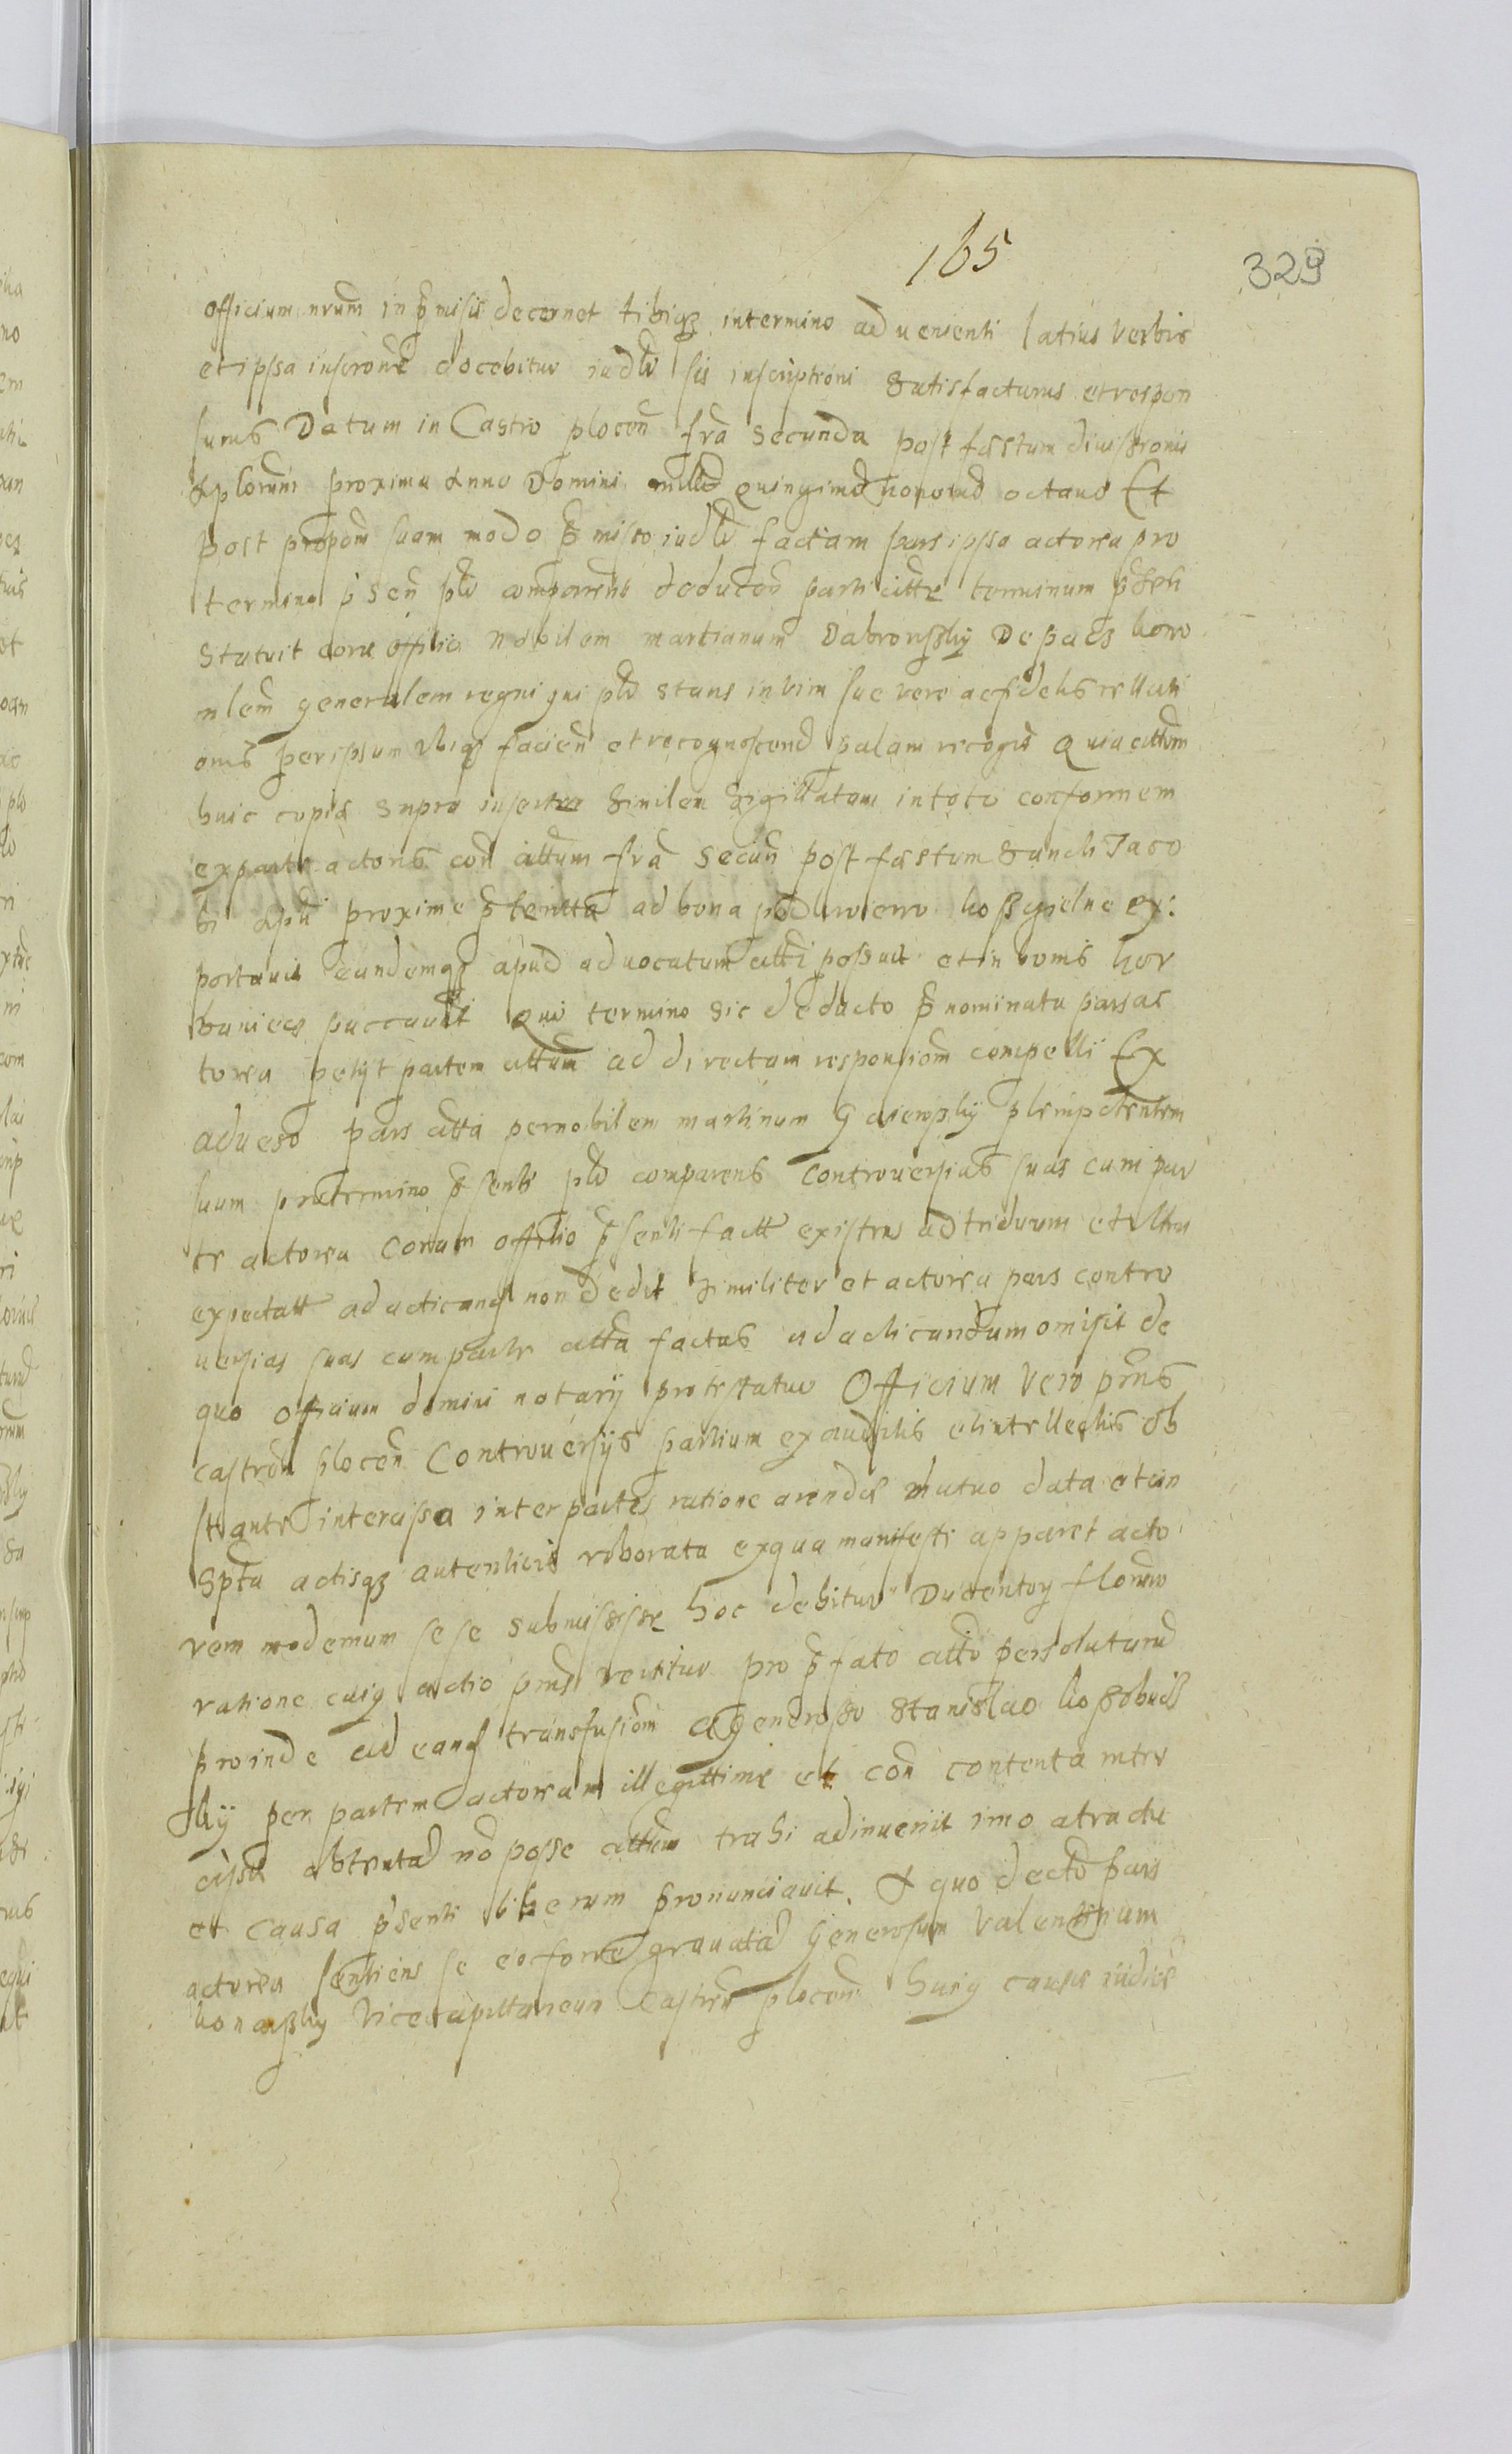 165
329
officium nrum in p̃misis decernet tibiqȝ in termino advenienti latius verbis
et ipsa inscrone docebitur iudłr sis inscriptioni satisfacturus et respon
surus Datum in Castro plocen̄ fr̃a secunda post fæstum divisionis
Aplorum proxima Anno Domini millo quingmo nonomo octavo Et
post proponm suam modo p̃misso iudłr factam pars ipsa actorea pro
termino p̃sen płr comparens deducen̄ parti citte terminum p̃sen
Statuit cora offitio Nobilem martianum Dabrowsky De
mlem generalem regni qui płr stans in vim sue vere ac fidelis rellati
onis per ipsum Ubiqȝ facien et recognoscend palam recogt Quia cittm
huic copiæ supra insertæ similem sigillatam in toto conformem
ex parte actoris con cittum fr̃a secun post fæstum Sancti Jaco
bi apli proxime p̃terita ad bona ex:
portavit eundemqȝ apud advocatum citti possuit et in bonis
Qui termino sic deducto p̃nominata pars ac
torea petyt partem cittam ad directam responsiom compelli Ex
adverso pars citta per nobilem martinum plenipotentem
suum pro termino p̃senti płr comparens Controversias suas cum par
te actorea Coram offitio p̃senti factt existen ad triduum et ultra
expectatt ad acticand non dedit similiter et actorea pars contro
versias suas cum parte citta factas ad acticandum omisit de
quo officium domini notarÿ protestatur Officium Vero p̃ns
castren plocen Controversÿs partium exauditis et intellectis ob
stante intercisa inter partes ratione arendæ mutuo data et in
Spta actisqȝ autenticis roborata ex qua manifeste apparet acto
rem modernum sese submisisse hoc debitum Ducentorum florenor
ratione cuiȝ actio p̃ns vertitur pro p̃fato citto persoluturum
proinde ad eand transfusiom A generoso Stanislao
per partem actoream illegittime et con contenta inter
cisæ obtentam no posse cittum trahi adinvenit imo a tractu
et causa p̃senti liberum pronunciavit. A quo decto pars
actorea sentiens se eo fore gravatam Generosum Valentinum
Vicecapittaneum Castren plocen huiȝ causæ iudicem